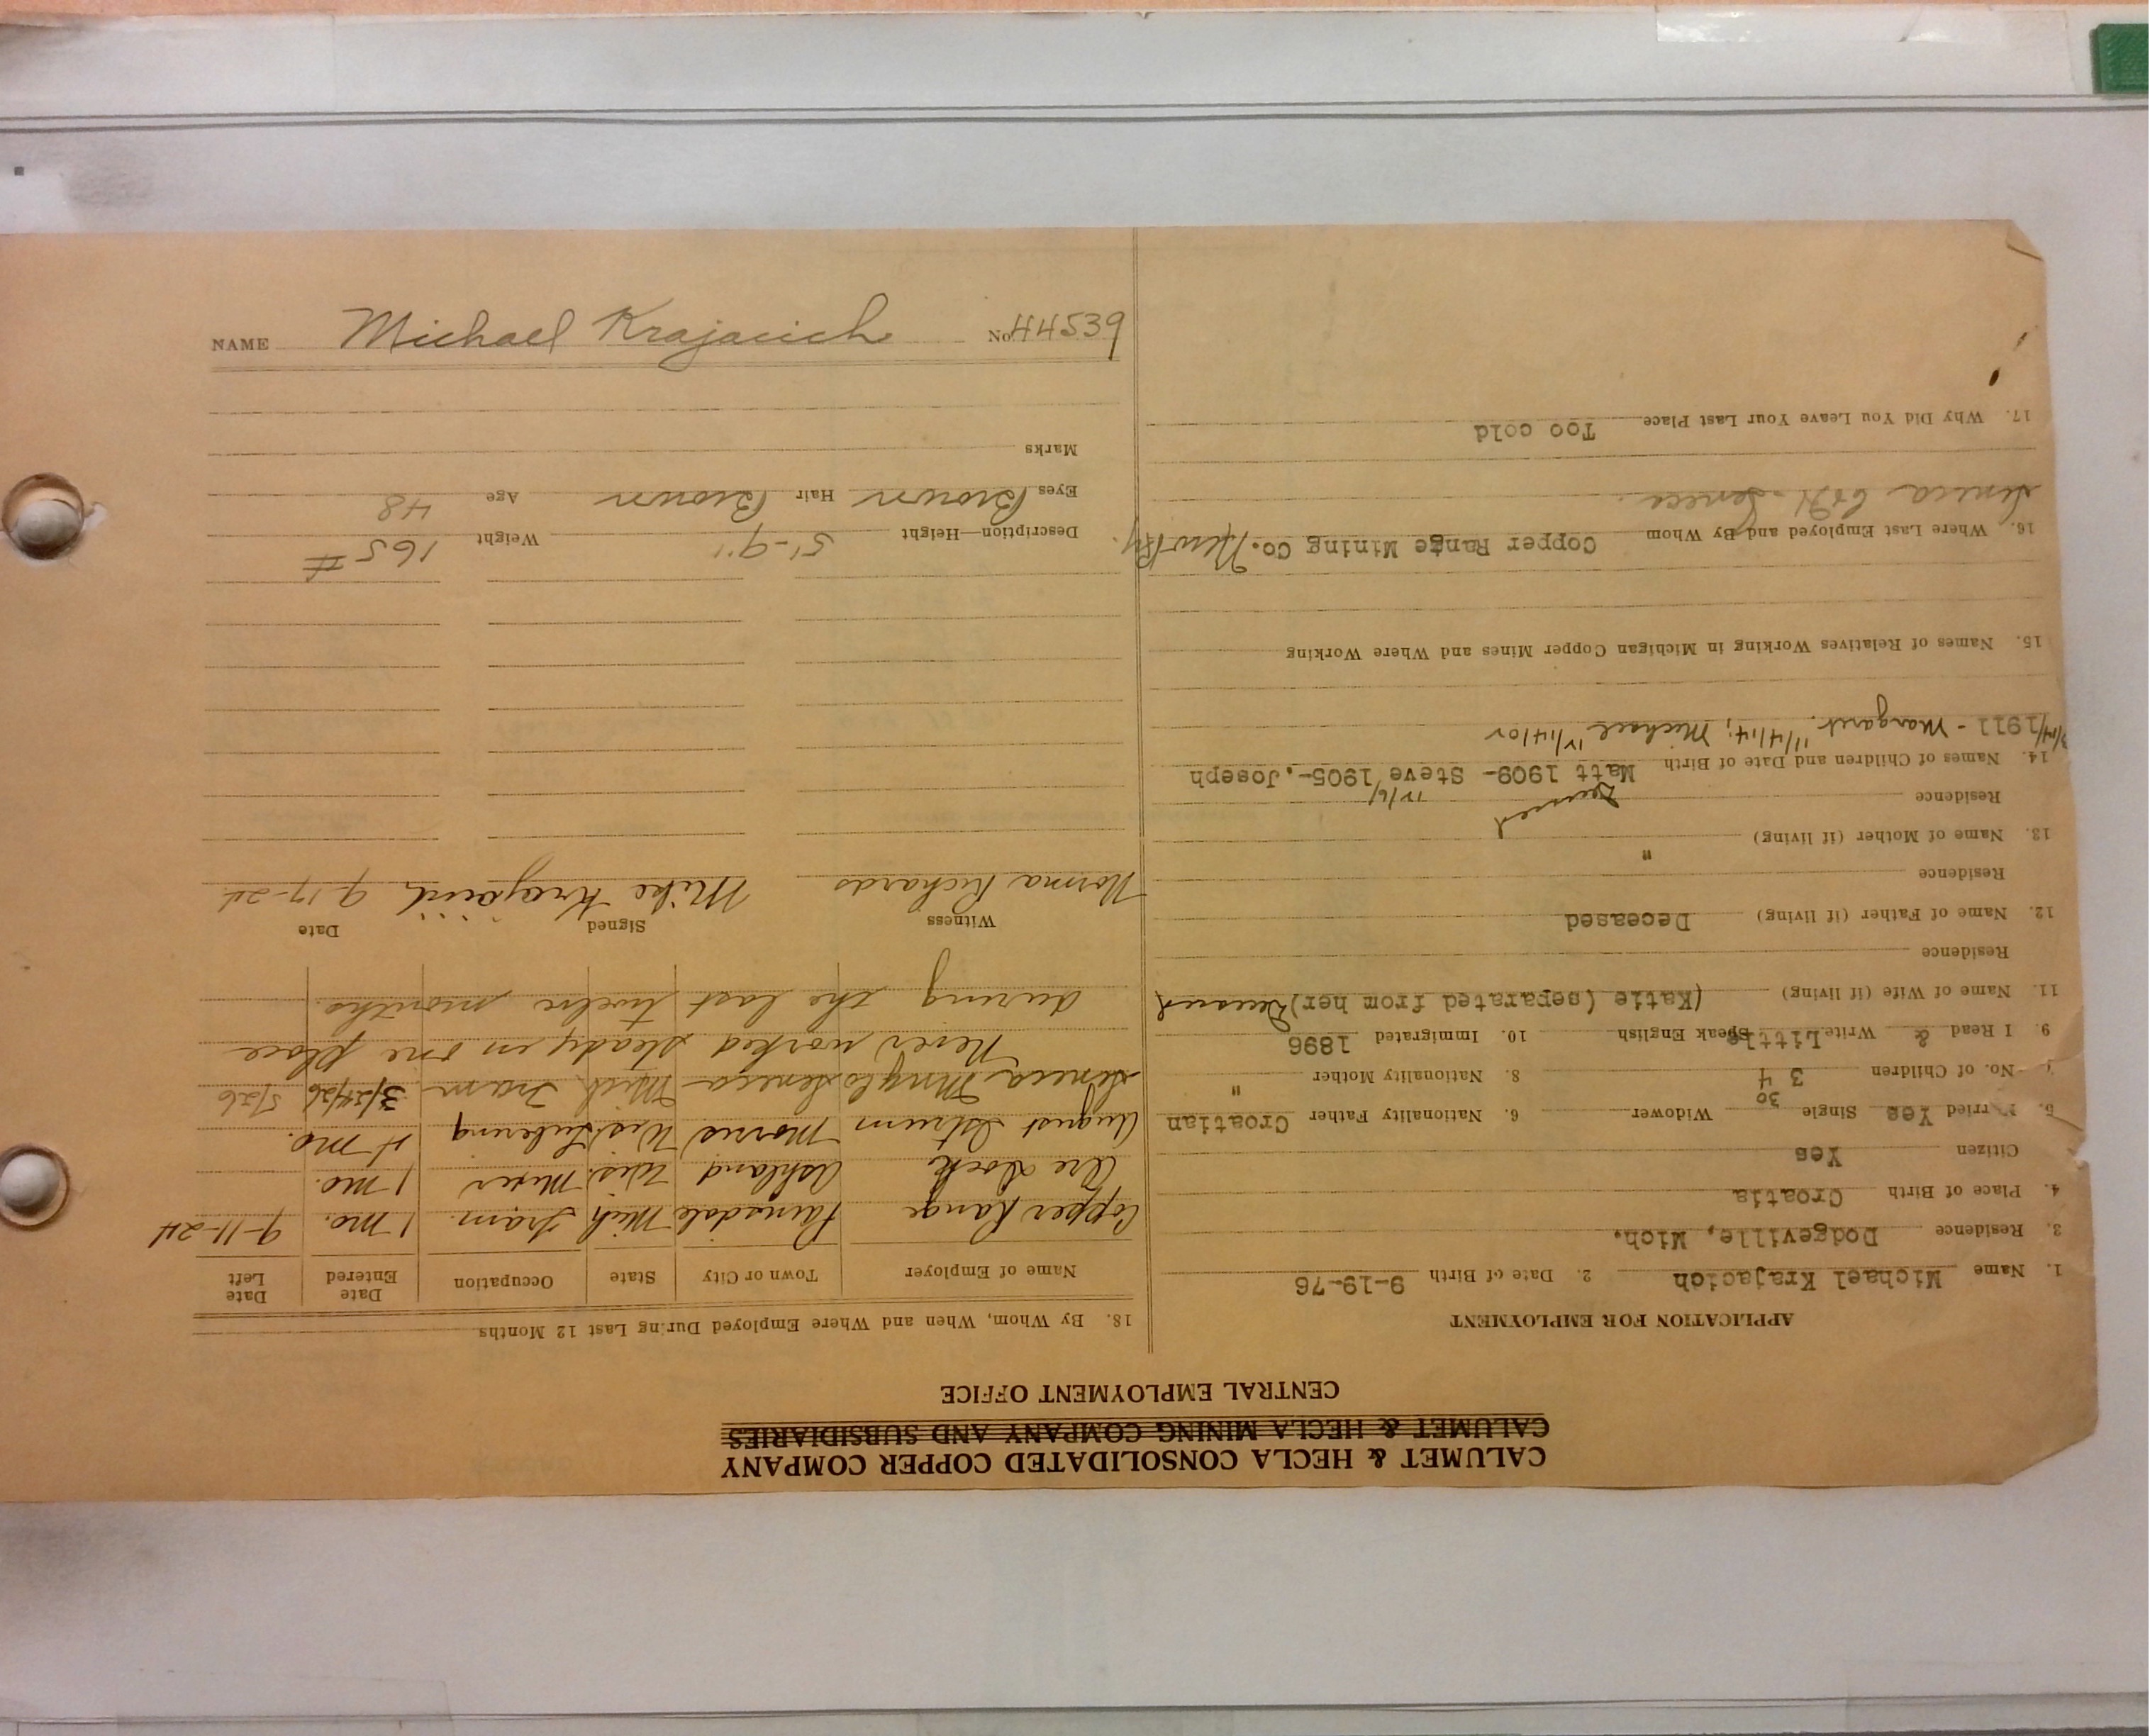 CALUMET & HECLA CONSOLIDATED COPPER COMPANY
CALUMET & HECLA MINING COMPANY AND SUBSIDIARIES
CENTRAL EMPLOYMENT OFFICE
APPLICATION FOR EMPLOYMENT
1. Name Michael Krajacich 2. Date of Birth 9-19-76
3. Residence Dodgeville, Mich.
4. Place of Birth Croatia
Citizen Yes
5. Married Yes Single Widower 6. Nationality Father Croatian
No. of Children 3 4 8. Nationality Mother "
9. I Read & Write Little Speak English 10. Immigrated 1896
11. Name of Wife (if living) (Katie (separated from her) Deceased
Residence
12. Name of Father (if living) Deceased
Residence
13. Name of Mother (if living) "
Residence Deceased
14. Names of Children and Date of Birth Matt 1909- Steve 1905-, Joseph
1911 - Margaret 11/4/14; Michael
15. Names of Relatives Working in Michigan Copper Mines and Where Working
16. Where Last Employed and By Whom Copper Range Mining Co.
Seneca C&H - Seneca
17. Why Did You Leave Your Last Place Too cold
18. By Whom, When and Where Employed During Last 12 Months
Name of Employer Town or City State Occupation Date Entered Date Left
Copper Range Painsdale Mich Tram. 1 mo. 9-11-24
Ore Dock Ashland Wis. Mixer 1 mo.
August Morris Wis. mo.
Seneca Seneca Mich Tram 3/24/26 5/26
Never worked steady in one place
during the last twelve months.
Witness Signed Date
Norma Richards Mike Krajacich 9-17-24
Description—Height 5'-9" Weight 165 #
Eyes Brown Hair Brown Age 48
Marks
NAME Michael Krajacich No. 44539